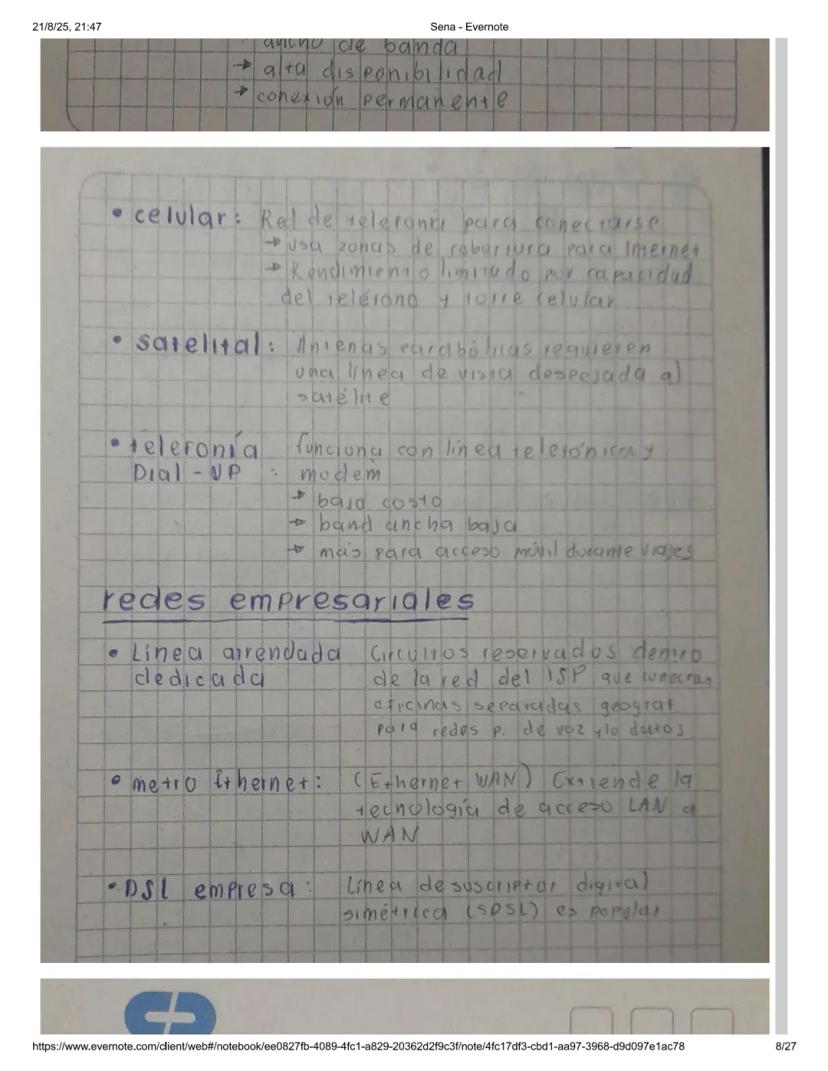 21/8/25, 21:47
Sena - Evernote
ancho de banda
→ alta disponibilidad
→ conexión permanente
• celular: Red de telefonía para conectarse
→ usa zonas de cobertura para Internet
→ Rendimiento limitado por capacidad
del teléfono y torre celular
• satelital: Antenas parabólicas requieren
una línea de vista despejada al
satélite
• telefonía funciona con línea telefónica y
Dial - UP : modem
→ bajo costo
→ band ancha baja
→ más para acceso móvil durante viajes
redes empresariales
• Línea arrendada Circuitos reservados dentro
dedicada de la red del ISP que conectan
oficinas separadas geograf.
para redes p. de voz y/o datos
• metro Ethernet: (Ethernet WAN) Extiende la
tecnología de acceso LAN a
WAN
• DSL empresa: Línea de suscriptor digital
simétrica (SDSL) es popular
https://www.evernote.com/client/web#/notebook/ee0827fb-4089-4fc1-a829-20362d2f9c3f/note/4fc17df3-cbd1-aa97-3968-d9d097e1ac78
8/27